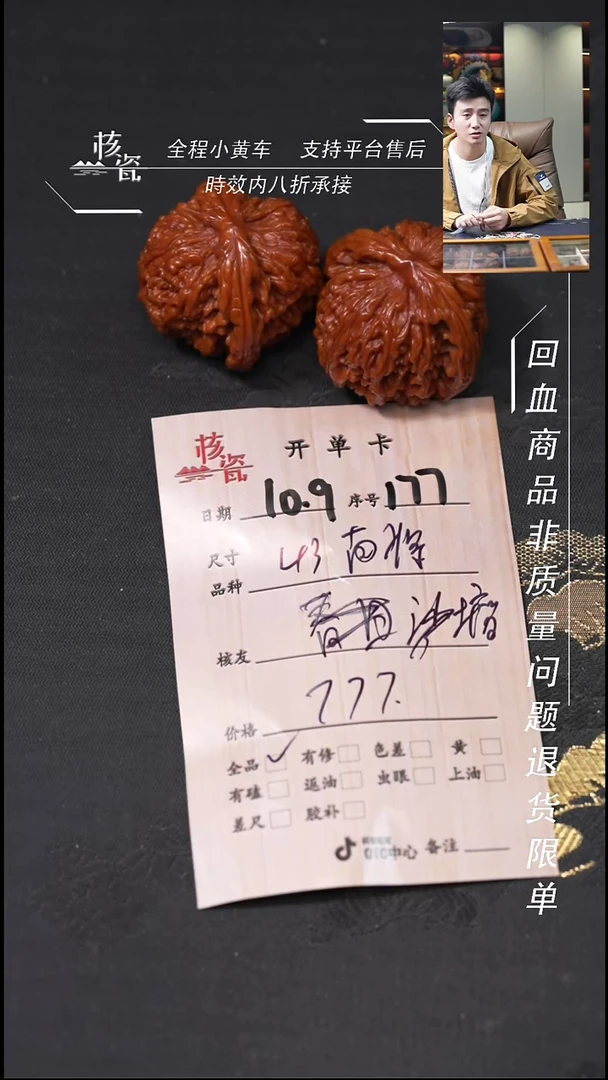 核瓷
全程小黄车 支持平台售后
時效内八折承接
回血商品非质量问题退货限单
核瓷 开单卡
日期 10.9 序号 177
尺寸 43 南将
品种
核友
价格 777.
全品 ✓ 有修 色差 黄
有磕 返油 虫眼 上油
差尺 胶补
中心 备注